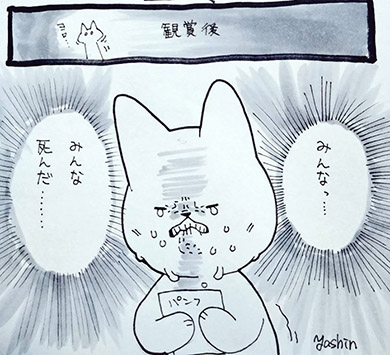 観賞後
みんなっ…
みんな
死んだ……
パンフ
Yashin